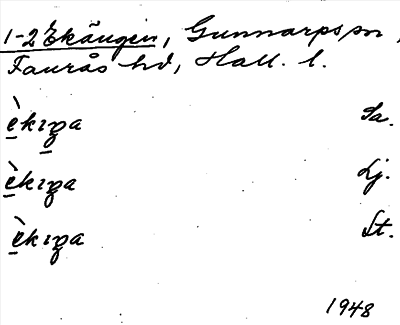 1-2 Ekängen, Gunnarps sn,
Faurås hd, Hall. l.
è̠kıŋa Sa.
è̠kıŋa Lj.
è̠kıŋa St.
1948